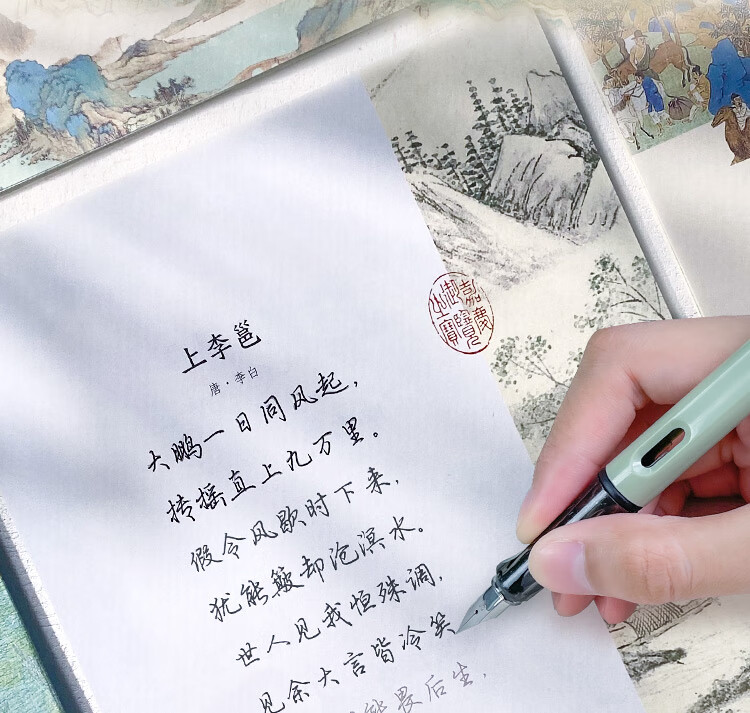 上李邕
唐·李白
大鹏一日同风起，
抟摇直上九万里。
假令风歇时下来，
犹能簸却沧溟水。
世人见我恒殊调，
见余大言皆冷笑
能畏后生，
嘉慶御覽之寶